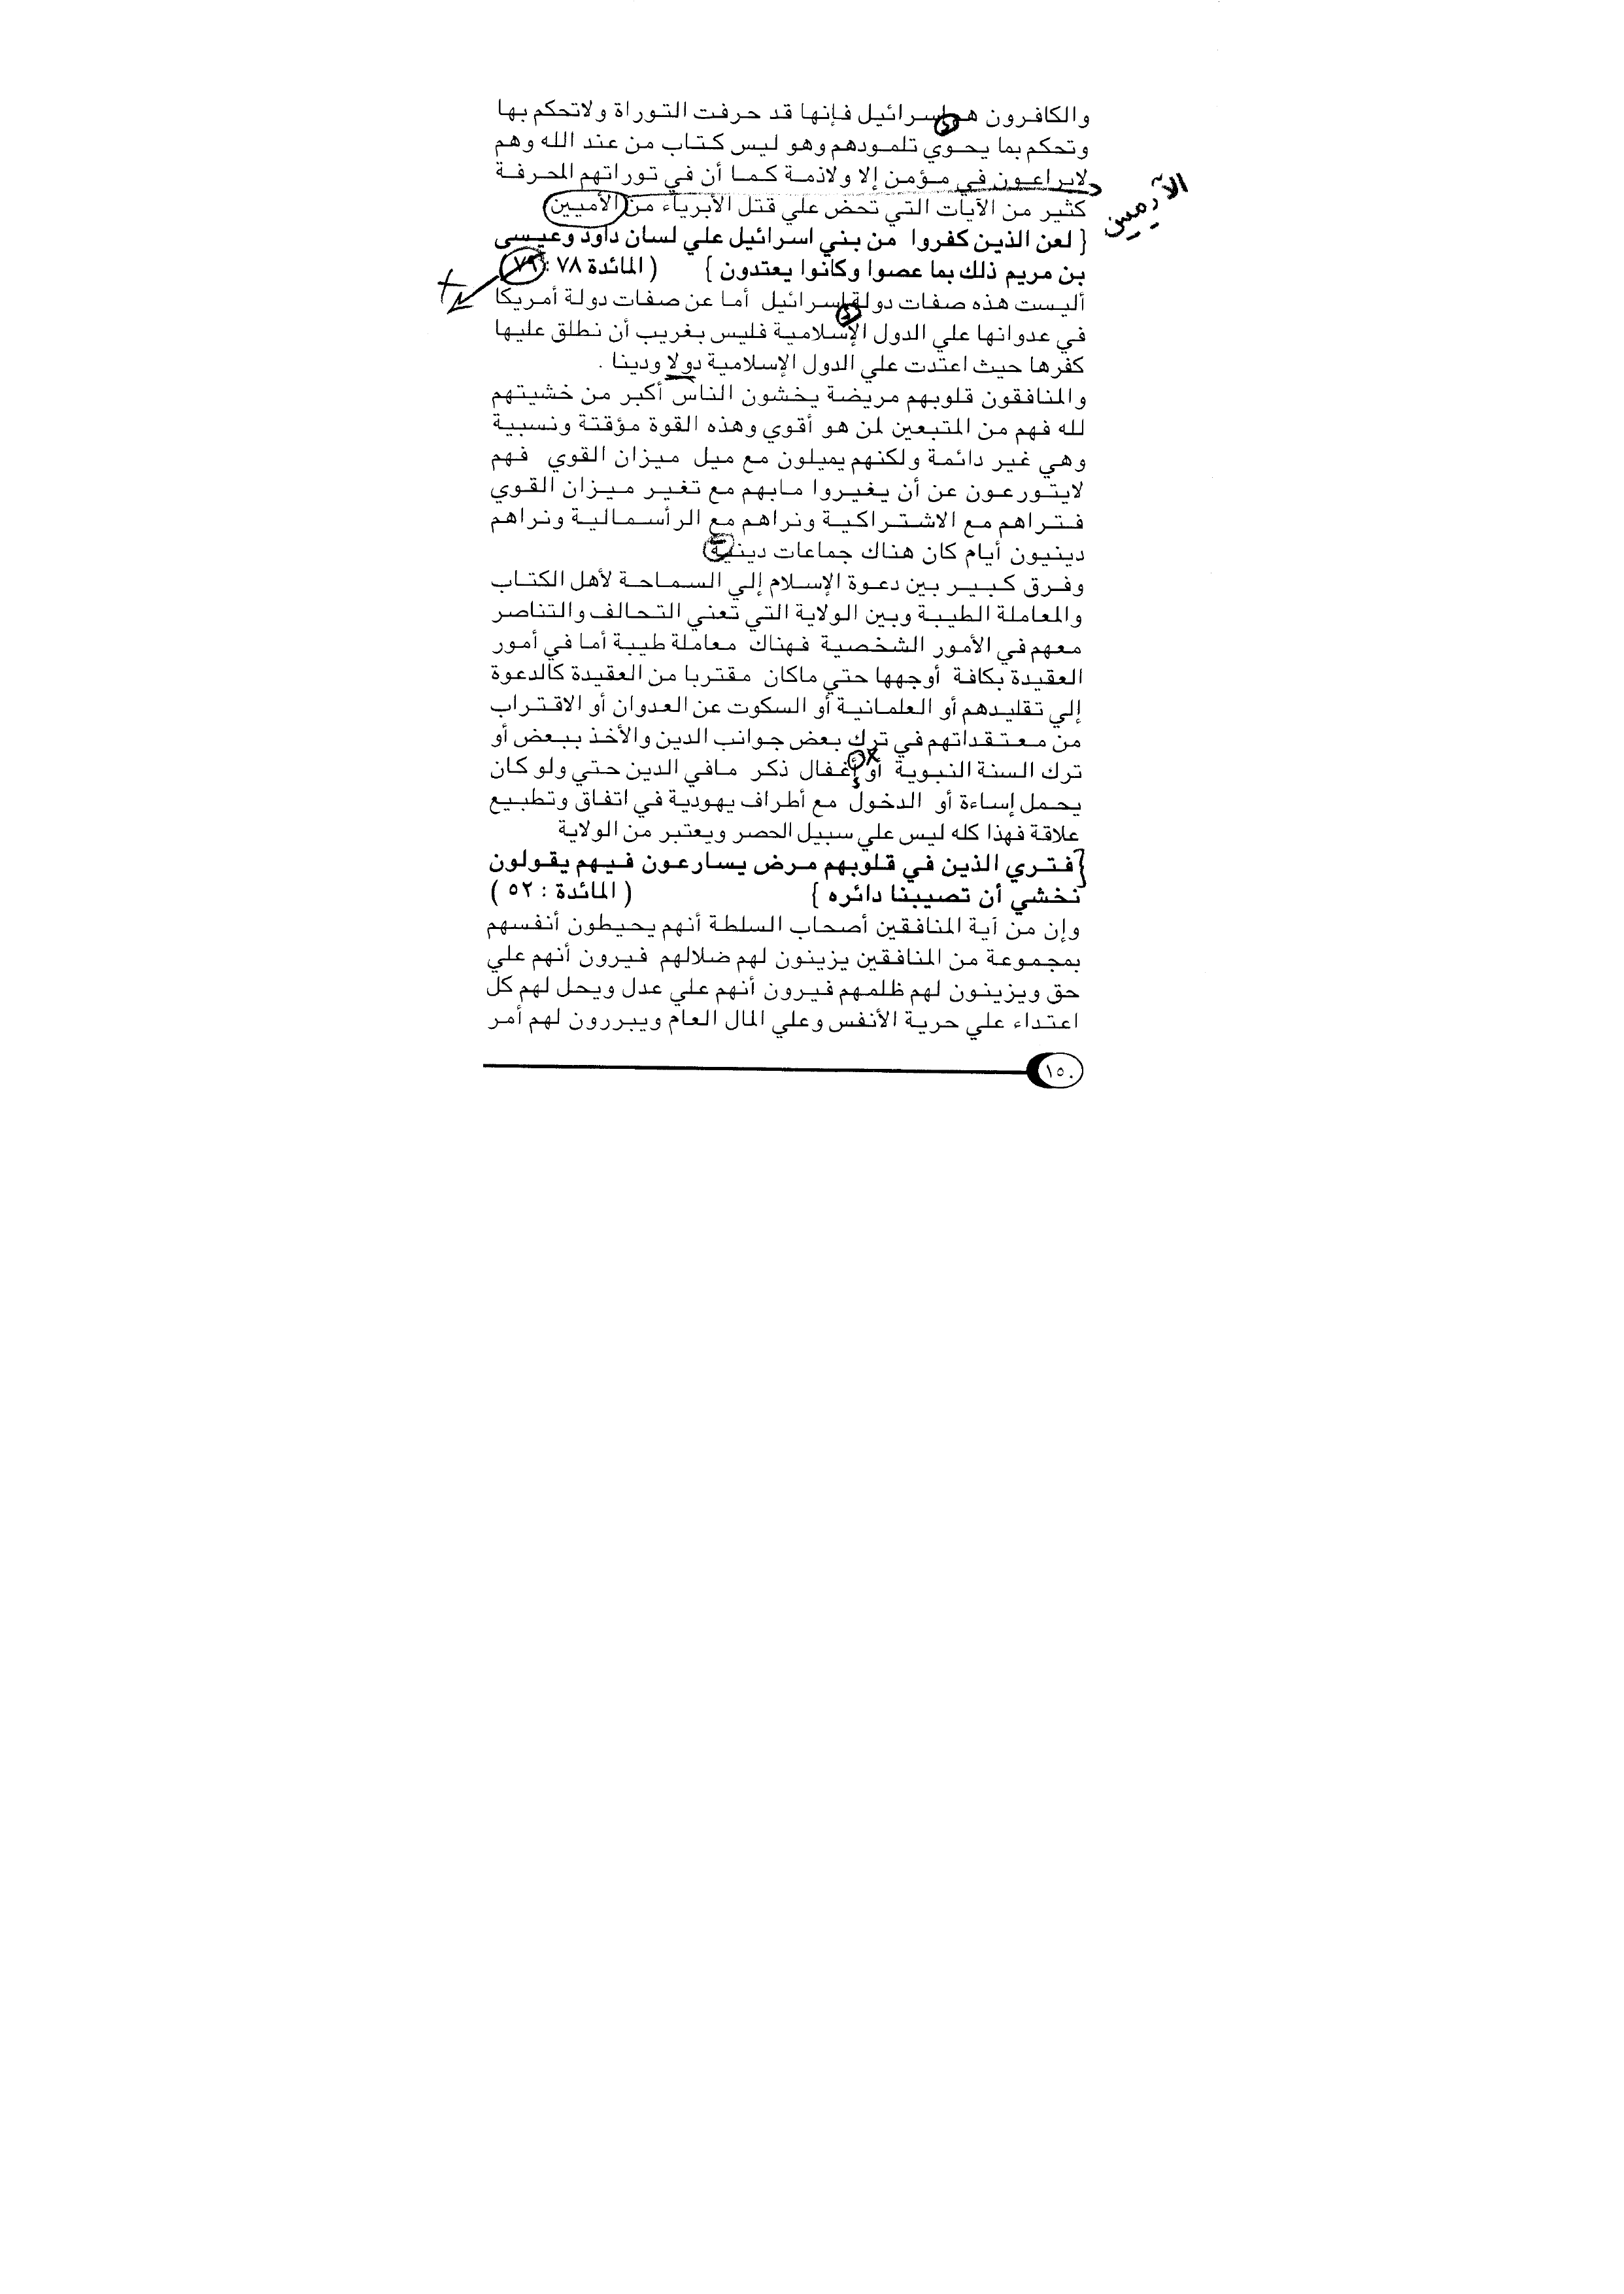 والكافرون هم إسرائيل فإنها قد حرفت التوراة ولاتحكم بها
وتحكم بما يحوي تلمودهم وهو ليس كتاب من عند الله وهم
لايراعون في مؤمن إلا ولاذمة كما أن في توراتهم المحرفة
كثير من الآيات التي تحض علي قتل الأبرياء من الأميين
{ لعن الذين كفروا من بني اسرائيل علي لسان داود وعيسى
بن مريم ذلك بما عصوا وكانوا يعتدون } ( المائدة ٧٨ : ٧٩
أليست هذه صفات دولة إسرائيل أما عن صفات دولة أمريكا
في عدوانها علي الدول الإسلامية فليس بغريب أن نطلق عليها
كفرها حيث اعتدت علي الدول الإسلامية دولا ودينا .
والمنافقون قلوبهم مريضة يخشون الناس أكبر من خشيتهم
لله فهم من المتبعين لمن هو أقوي وهذه القوة مؤقتة ونسبية
وهي غير دائمة ولكنهم يميلون مع ميل ميزان القوي فهم
لايتورعون عن أن يغيروا مابهم مع تغير ميزان القوي
فتراهم مع الاشتراكية ونراهم مع الرأسمالية ونراهم
دينيون أيام كان هناك جماعات دينية
وفرق كبير بين دعوة الإسلام إلي السماحة لأهل الكتاب
والمعاملة الطيبة وبين الولاية التي تعني التحالف والتناصر
معهم في الأمور الشخصية فهناك معاملة طيبة أما في أمور
العقيدة بكافة أوجهها حتي ماكان مقتربا من العقيدة كالدعوة
إلي تقليدهم أو العلمانية أو السكوت عن العدوان أو الاقتراب
من معتقداتهم في ترك بعض جوانب الدين والأخذ ببعض أو
ترك السنة النبوية أو إغفال ذكر مافي الدين حتي ولو كان
يحمل إساءة أو الدخول مع أطراف يهودية في اتفاق وتطبيع
علاقة فهذا كله ليس علي سبيل الحصر ويعتبر من الولاية
{ فتري الذين في قلوبهم مرض يسارعون فيهم يقولون
نخشي أن تصيبنا دائره } ( المائدة : ٥٢ )
وإن من آية المنافقين أصحاب السلطة أنهم يحيطون أنفسهم
بمجموعة من المنافقين يزينون لهم ضلالهم فيرون أنهم علي
حق ويزينون لهم ظلمهم فيرون أنهم علي عدل ويحل لهم كل
اعتداء علي حرية الأنفس وعلي المال العام ويبررون لهم أمر
١٥٠